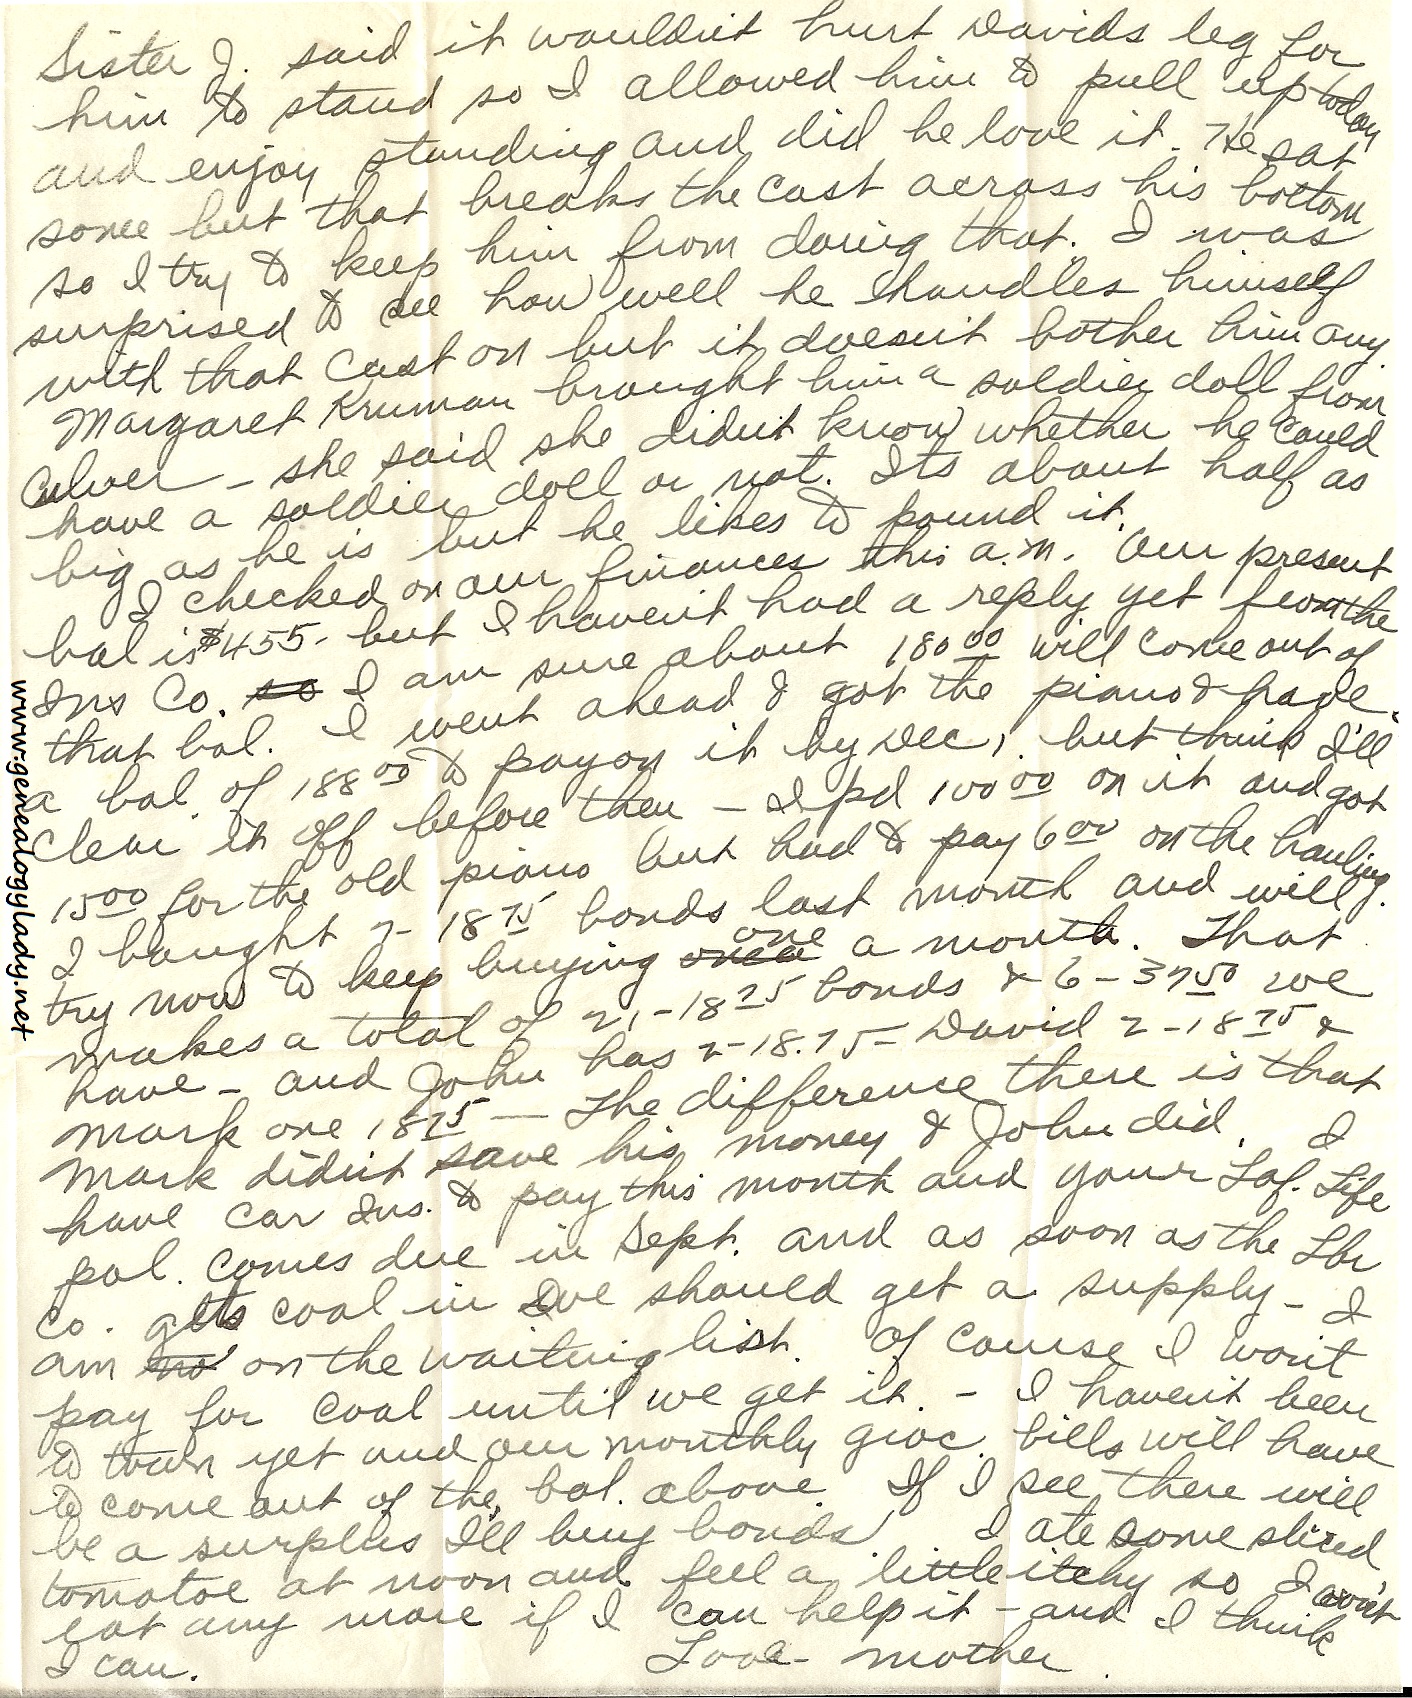 Sister J. said it wouldn't hurt Davids leg for
him to stand so I allowed him to pull up today
and enjoy standing and did he love it. He sat
some but that breaks the cast across his bottom
so I try to keep him from doing that. I was
surprised to see how well he handles himself
with that cast on but it doesn't bother him any.
Margaret Kruman brought him a soldier doll from
Culver - she said she didn't know whether he could
have a soldier doll or not. Its about half as
big as he is but he likes to pound it.
I checked on our finances this a.m. Our present
bal is $455. but I haven't had a reply yet from the
Ins Co. so I am sure about 180 00 will come out of
that bal. I went ahead & got the piano & have
a bal. of 188 00 to pay on it by Dec, but think I'll
clear it off before then - I pd 100 00 on it and got
15 00 for the old piano but had to pay 6 00 on the hauling.
I bought 2- 18 75 bonds last month and will
try now to keep buying once one a month. That
makes a total of 21-18 75 bonds & 6-37 50 we
have - and John has 2-18.75 - David 2-18 75 &
Mark one 18 75 — The difference there is that
Mark didn't save his money & John did. I
have car Ins. to pay this month and your Laf. Life
pol. comes due in Sept. and as soon as the Lbr
Co. gets coal in we should get a supply - I
am no on the waiting list. Of course I won't
pay for coal until we get it. - I haven't been
to town yet and our monthly groc. bills will have
to come out of the bal. above. If I see there will
be a surplus I'll buy bonds. I ate some sliced
tomatoe at noon and feel a little itchy so I won't
eat any more if I can help it - and I think
I can. Love - mother.
www.genealogylady.net